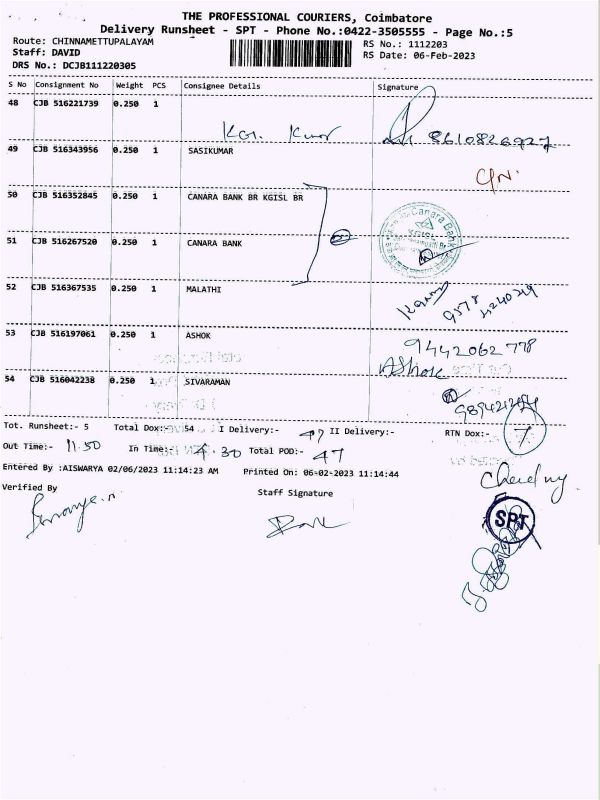 THE PROFESSIONAL COURIERS, Coimbatore
Delivery Runsheet - SPT - Phone No.:0422-3505555 - Page No.:5
Route: CHINNAMETTUPALAYAM
RS No.: 1112203
Staff: DAVID
RS Date: 06-Feb-2023
DRS No.: DCJB111220305
S No Consignment No Weight PCS Consignee Details Signature
48 CJB 516221739 0.250 1
8610826727
49 CJB 516343956 0.250 1 SASIKUMAR
50 CJB 516352845 0.250 1 CANARA BANK BR KGISL BR
Canara Bank
KGISL
51 CJB 516267520 0.250 1 CANARA BANK
52 CJB 516367535 0.250 1 MALATHI
53 CJB 516197061 0.250 1 ASHOK
9442062778
Ashok
54 CJB 516042238 0.250 1 SIVARAMAN
Tot. Runsheet:- 5 Total Dox:- 54 I Delivery:- 47 II Delivery:- RTN Dox:- 7
Out Time:- 11.50 In Time:- 4.30 Total POD:- 47
Entered By :AISWARYA 02/06/2023 11:14:23 AM Printed On: 06-02-2023 11:14:44
Verified By
Staff Signature
SPT